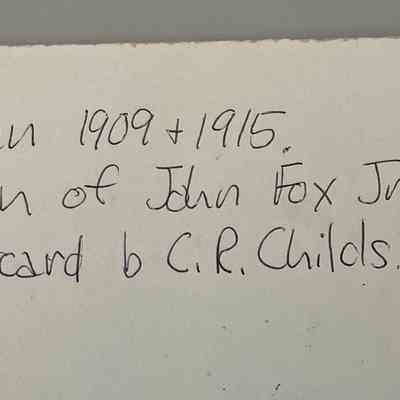 n 1909 + 1915.
n of John Fox Jr
card b C.R. Childs.